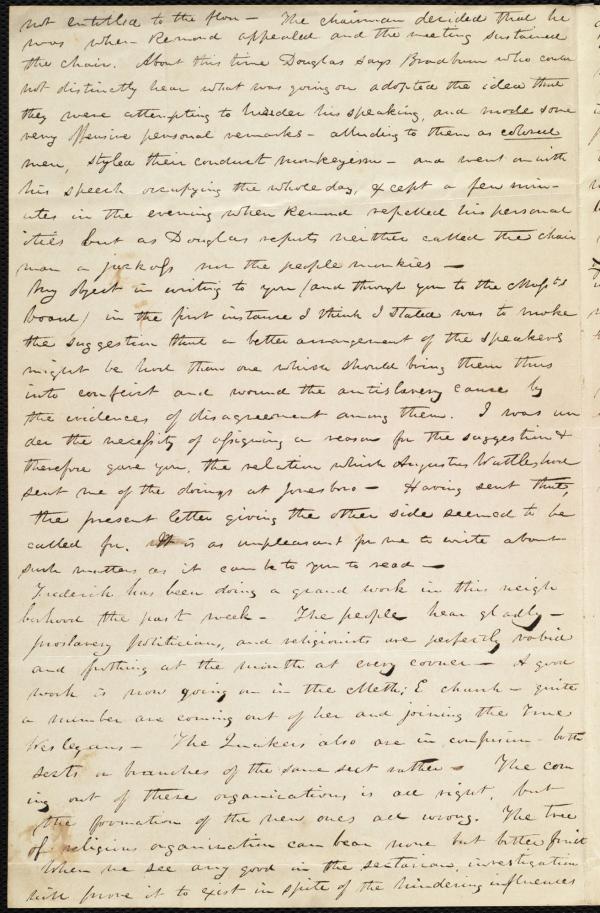 not entitled to the floor — The chairman decided that he
was when Remond appealed and the meeting sustained
the chair. About this time Douglas says Bradburn who could
not distinctly hear what was going on adopted the idea that
they were attempting to hinder his speaking, and made some
very offensive personal remarks — alluding to them as colored
men, styled their conduct monkeyism — and went on with
his speech occupying the whole day, except a few min-
utes in the evening when Remond repelled his personal
ities but as Douglas reports neither called the chair
man a jackass nor the people monkies —
My object in writing to you (and through you to the Massts
board) in the first instance I think I stated was to make
the suggestion that a better arrangement of the speakers
might be had than one which should bring them thus
into conflict and wound the antislavery cause by
the evidences of disagreement among them. I was un
der the necessity of assigning a reason for the suggestion &
therefore gave you, the relation which Augustus Wattles had
sent me of the doings at Jonesboro — Having sent that,
the present letter giving the other side seemed to be
called for. It is as unpleasant for me to write about
such matters as it can be to you to read —
Frederick has been doing a grand work in this neigh
borhood the past week — The people hear gladly —
proslavery politicians, and religionists are perfectly rabid
and frothing at the mouth at every corner — A good
work is now going on in the Meth; E church — quite
a number are coming out of her and joining the True
Wesleyans — The Quakers also are in confusion — both
sects or branches of the same sect rather — The com
ing out of these organizations is all right, but
the formation of the new ones all wrong. The tree
of religious organization can bear none but bitter fruit
When we see any good in the sectarian, investigation
will prove it to exist in spite of the hindering influences